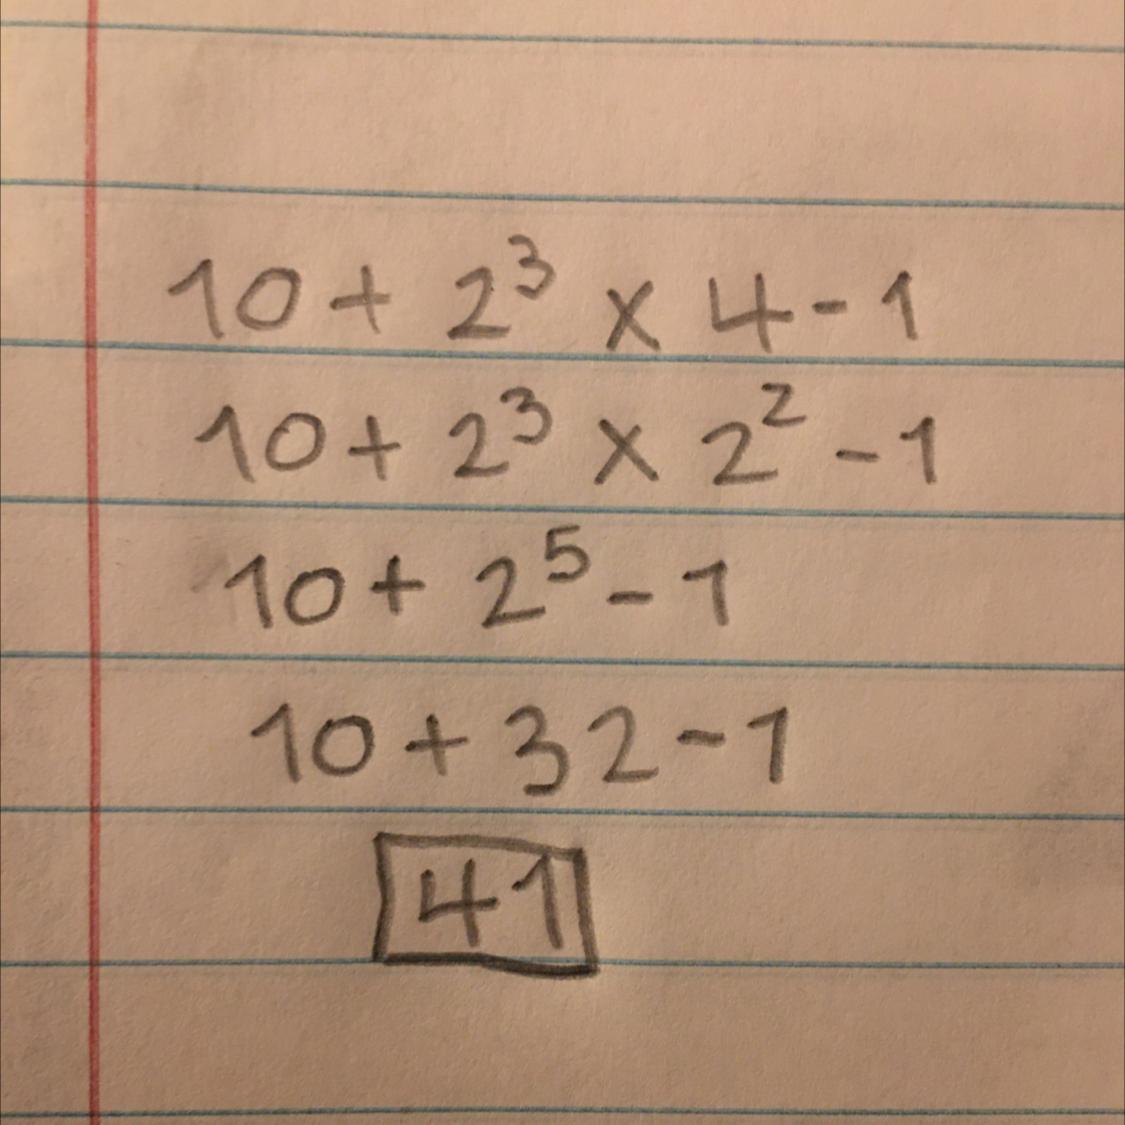 10 + 2³ × 4 - 1
10 + 2³ × 2² - 1
10 + 2⁵ - 1
10 + 32 - 1
41